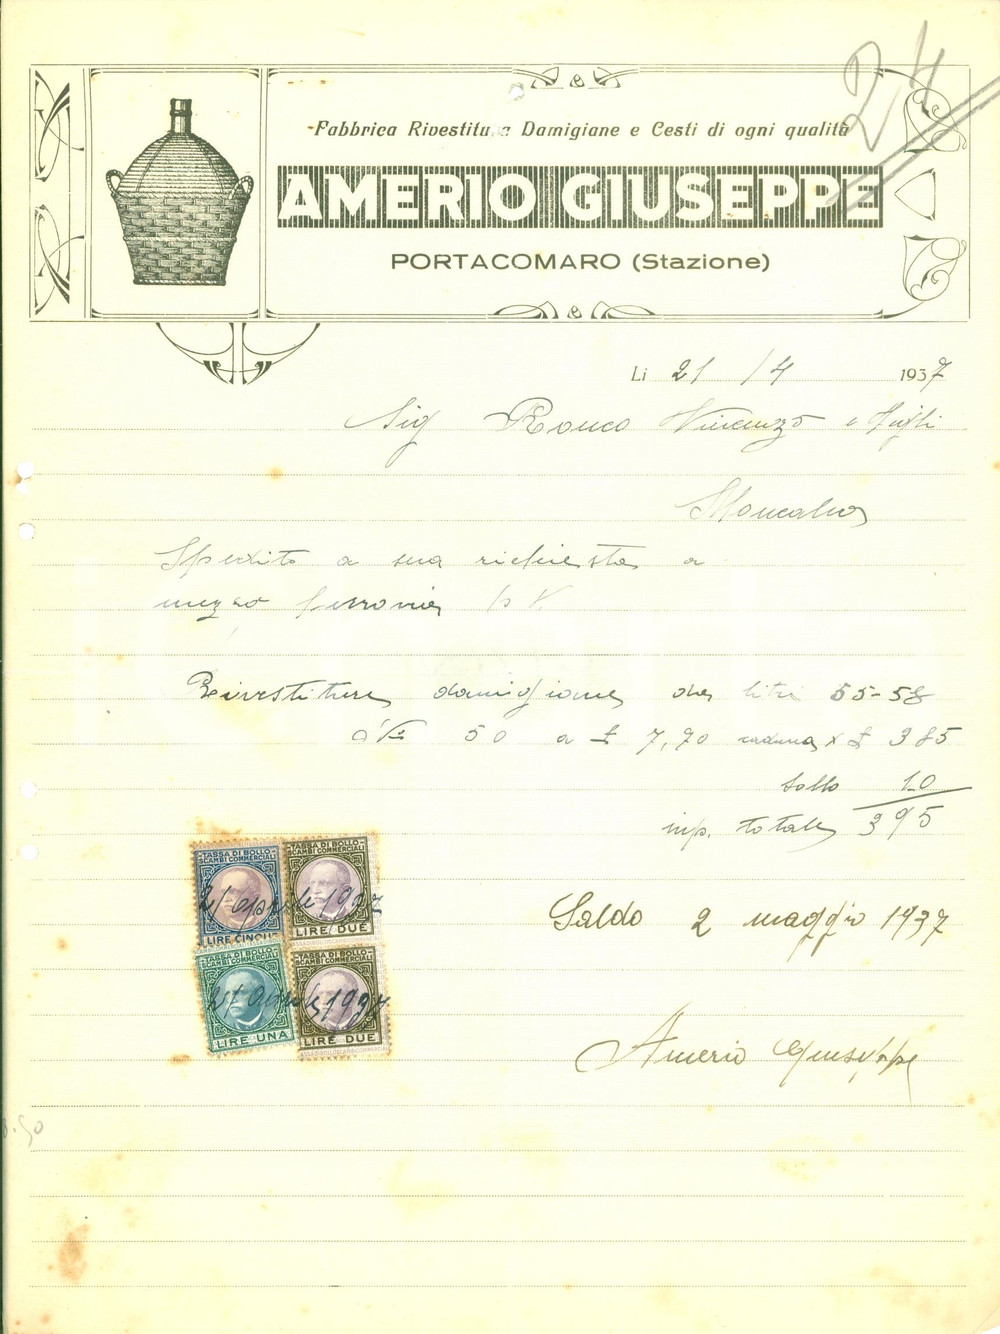 24
Fabbrica Rivestitura Damigiane e Cesti di ogni qualità
AMERIO GIUSEPPE
PORTACOMARO (Stazione)
Li 21/4 1937
Sig Ronco Vincenzo e Figli
Moncalvo
Spedito a sua richiesta a
mezzo ferrovia P.V.
Rivestiture damigiane da litri 55-58
N° 50 a £ 7,70 caduna £ 385
bollo 10
imp. totale 395
TASSA DI BOLLO
SCAMBI COMMERCIALI
LIRE CINQUE
TASSA DI BOLLO
SCAMBI COMMERCIALI
LIRE DUE
21 aprile 1937
Saldo 2 maggio 1937
TASSA DI BOLLO
SCAMBI COMMERCIALI
LIRE UNA
TASSA DI BOLLO
SCAMBI COMMERCIALI
LIRE DUE
21 aprile 1937
Amerio Giuseppe